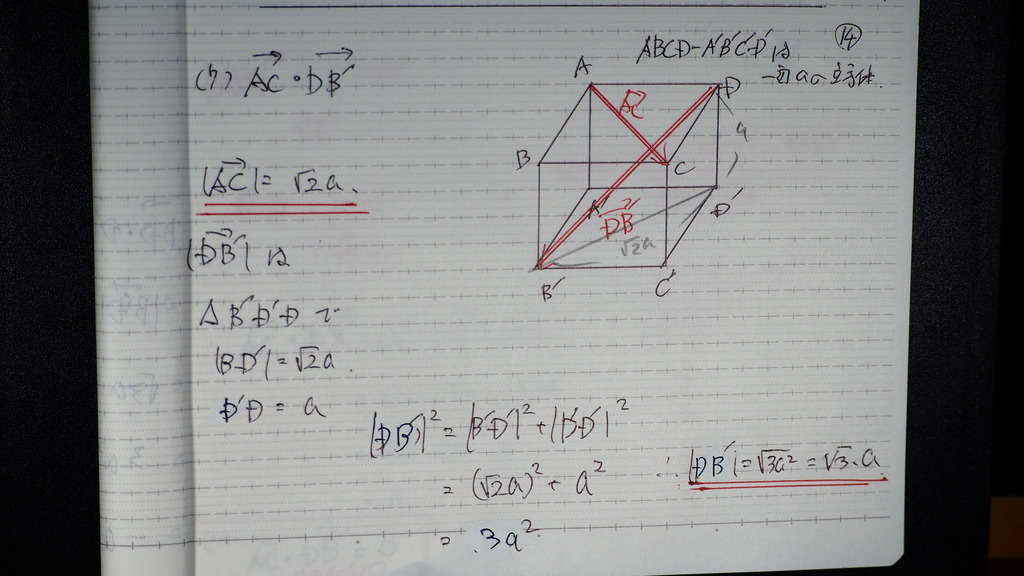 ⑭
ABCD-A'B'C'D'は
一辺aの立方体.
(ウ) AC・DB'
|AC|=√2a.
|DB'|は
△B'D'Dで
|BD'|=√2a.
D'D = a
|DB'|² = |B'D'|² + |D'D|²
= (√2a)² + a²
= 3a²
∴ |DB'|=√3a²=√3・a
A
D
AC
a
B
C
A'
D'
DB'
√2a
B'
C'